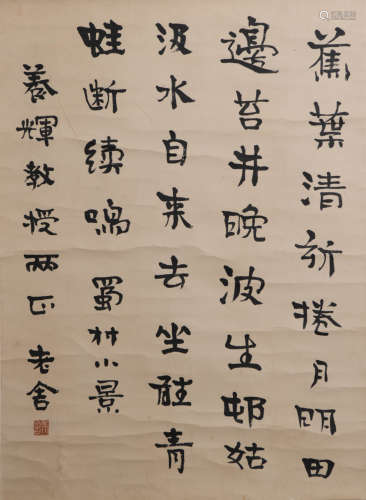 蕉葉清新捲月明田
邊苔井晚波生邨姑
汲水自来去坐聽青
蛙断续鳴 蜀村小景
養輝教授两正 老舍